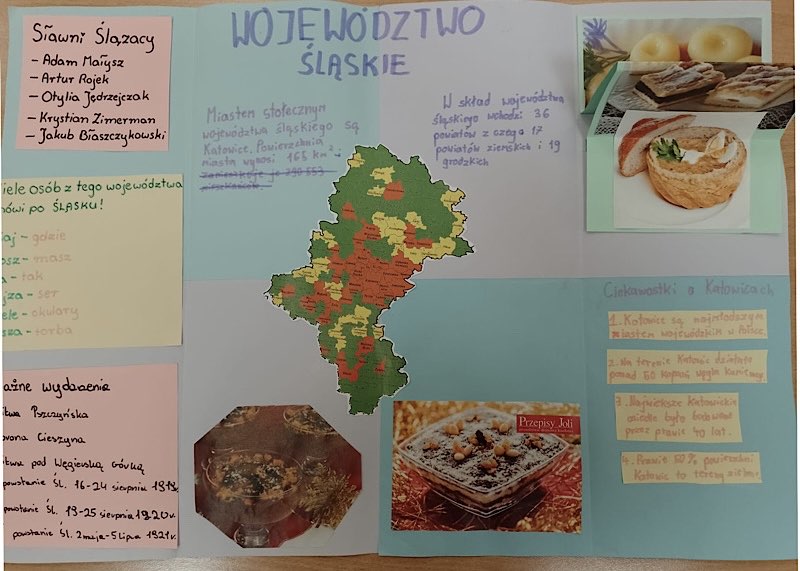 Sławni Ślązacy
- Adam Małysz
- Artur Rojek
- Otylia Jędrzejczak
- Krystian Zimerman
- Jakub Błaszczykowski
WOJEWÓDZTWO
ŚLĄSKIE
Miastem stołecznym
województwa śląskiego są
Katowice. Powierzchnia
miasta wynosi 165 km²
W skład województwa
śląskiego wchodzi 36
powiatów z czego 17
powiatów ziemskich i 19
grodzkich
iele osób z tego województwa
mówi po ŚLĄSKU!
aj - gdzie
osz - masz
a - tak
jza - ser
ele - okulary
sza - torba
ażne wydarzenia
itwa Pszczyńska
orona Cieszyna
itwa pod Węgierską Górką
powstanie Śl. 16-24 sierpnia 1919r.
powstanie Śl. 19-25 sierpnia 1920r.
powstanie Śl. 2 maja-5 lipca 1921r.
Przepisy Joli
Ciekawostki o Katowicach
1. Katowice są najmłodszym
miastem wojewódzkim w Polsce.
2. Na terenie Katowic działało
ponad 50 kopalń węgla kamiennego
3. Największe Katowickie
osiedle było budowane
przez prawie 40 lat.
4. Prawie 50% powierzchni
Katowic to tereny zielone